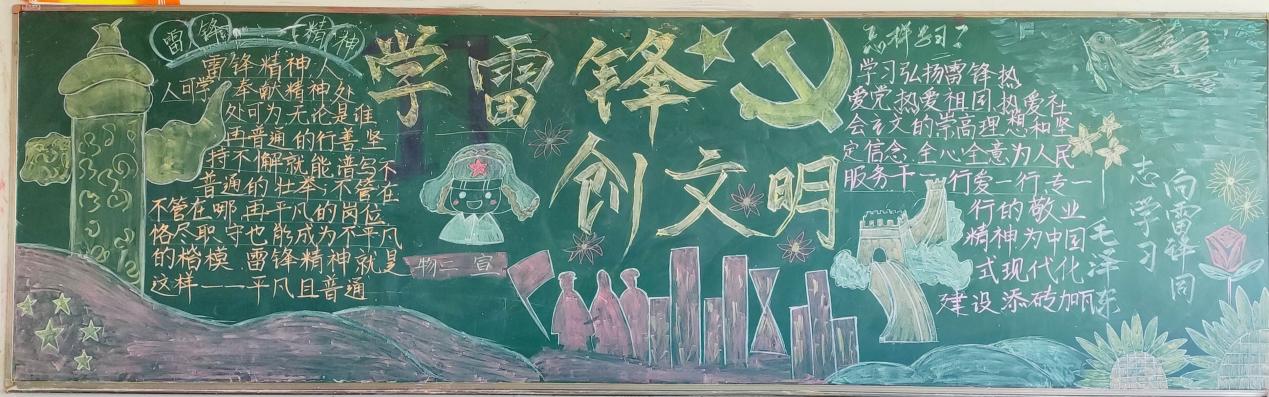 雷锋精神
雷锋精神人
人可学；奉献精神处
处可为无论是谁
再普通的行善坚
持不懈就能谱写不
普通的壮举；不管在
不管在哪，再平凡的岗位
恪尽职守也能成为不平凡
的楷模。雷锋精神就是
这样——平凡且普通
学雷锋
创文明
物二宣
怎样学习？
学习弘扬雷锋热
爱党、热爱祖国、热爱社
会主义的崇高理想和坚
定信念.全心全意为人民
服务.干一行爱一行、专一
行的敬业
精神为中国
式现代化
建设添砖加瓦
向雷锋同
志学习
毛泽东